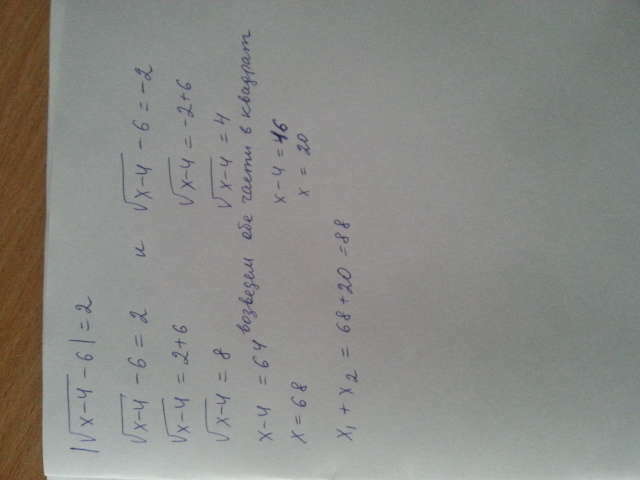 |√x-4 - 6| = 2
√x-4 - 6 = 2 и √x-4 - 6 = -2
√x-4 = 2+6 √x-4 = -2+6
√x-4 = 8 √x-4 = 4
возведем обе части в квадрат
x-4 = 64 x-4 = 16
x = 68 x = 20
x₁ + x₂ = 68+20 = 88